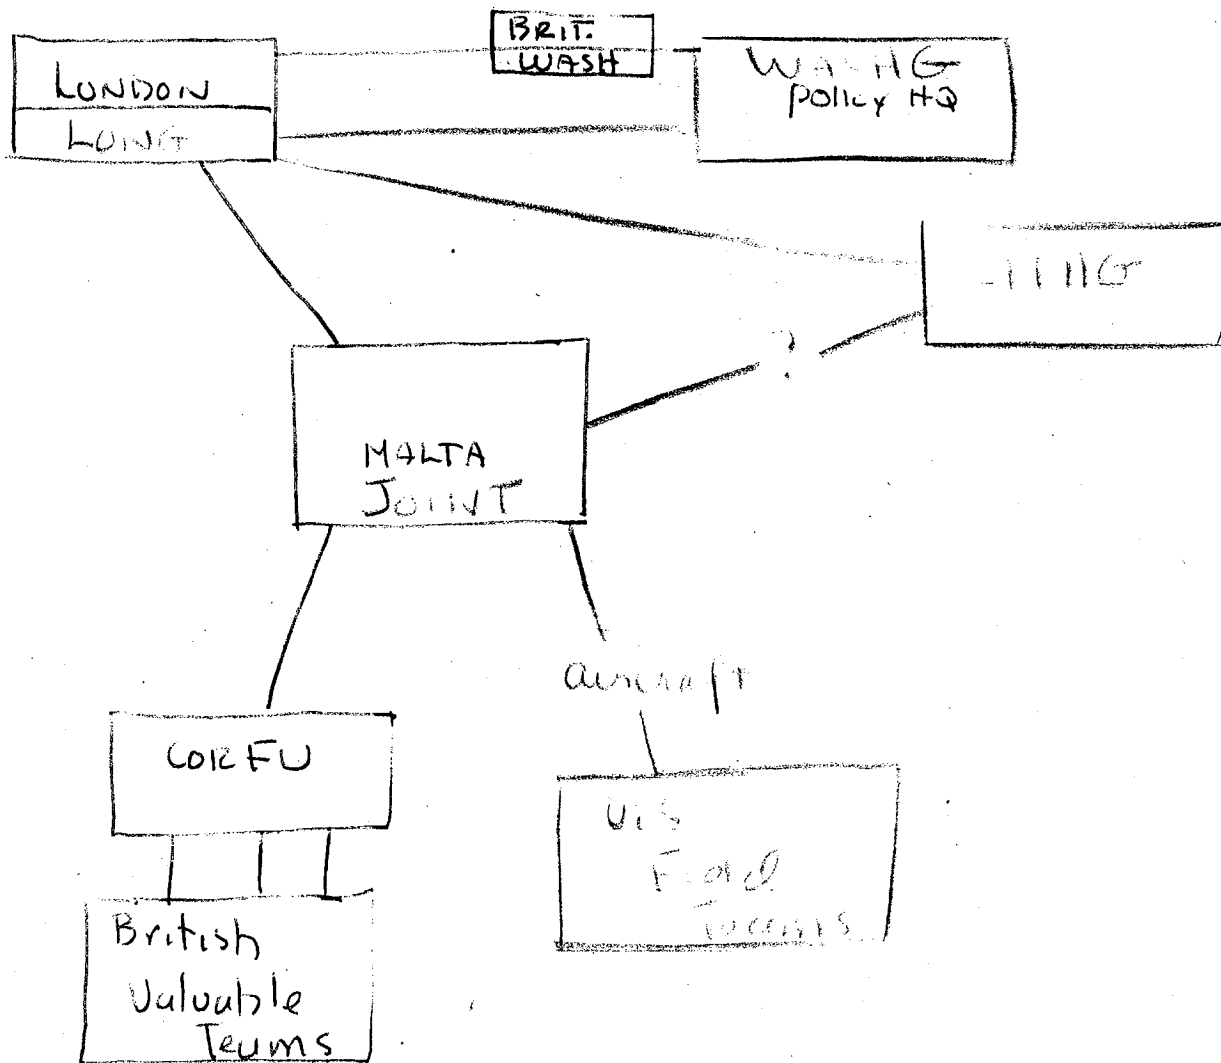 BRIT.
WASH
LONDON
WASHG
Policy HQ
?
MALTA
JOINT
aircraft
CORFU
U.S
Field
Teams
British
Valuable
Teams